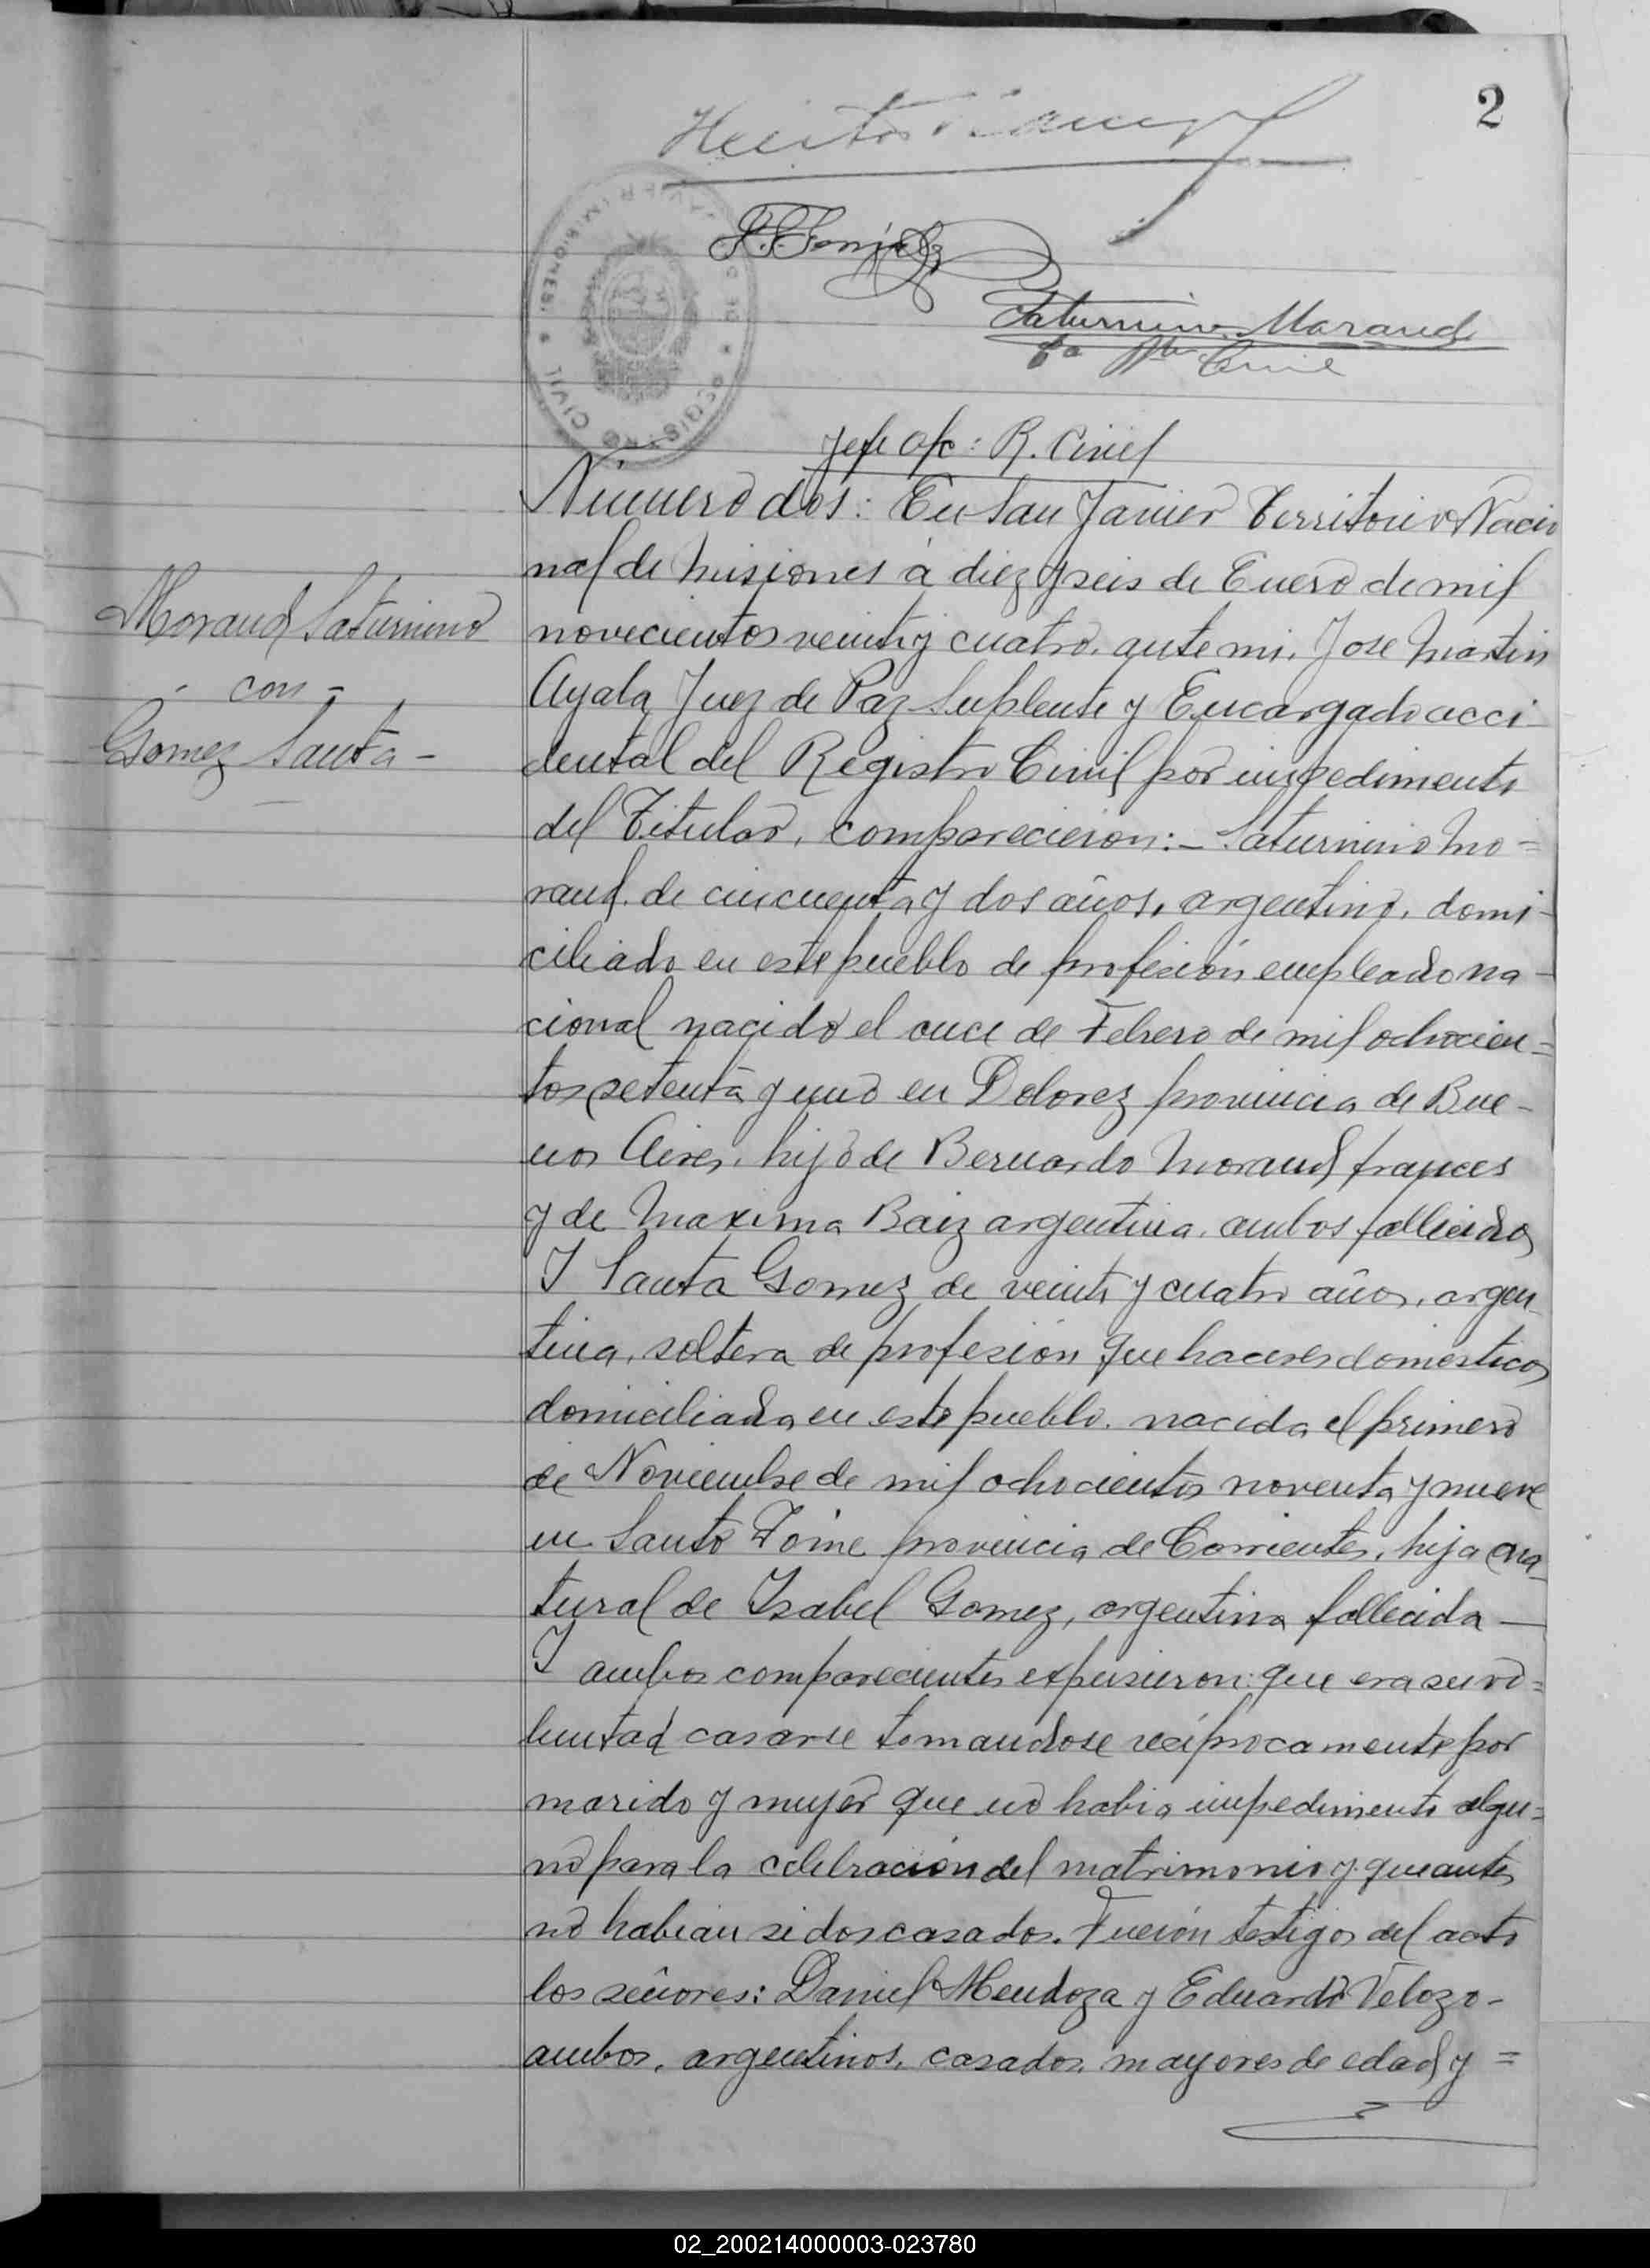 2
F. Gonzalez
Saturnino Morand
Civil
Jefe Ofc: R. Civil
REGISTRO CIVIL
Número dos: En San Javier Territorio Nacio
nal de Misiones á diez y seis de Enero de mil
Morand Saturnino
novecientos veinti y cuatro, ante mi, Jose Martin
- con -
Ayala Juez de Paz Suplente y Encargado acci-
Gomez Santa -
dental del Registro Civil por impedimento
del Titular, comparecieron: - Saturnino Mo=
rand, de cincuenta y dos años, argentino, domi-
ciliado en este pueblo de profesión empleado na-
cional nacido el once de Febrero de mil ochocien=
tos setenta y uno en Dolorez provincia de Bue-
nos Aires, hijo de Bernardo Morand frances
y de Maxima Baiz argentina, ambos fallecidos
Y Santa Gomez de veinti y cuatro años, argen
tina, soltera de profesión que haceres domesticos
domiciliada en este pueblo, nacida el primero
de Noviembre de mil ochocientos noventa y nueve
en Santo Tóme provincia de Corrientes, hija na_
tural de Isabel Gomez, argentina fallecida —
Y ambos comparecientes expusieron: que era su vo=
luntad casarse tomandose recíprocamente por
marido y mujer que no habia impedimento algu=
no para la celebración del matrimonio y que antes
no habian sidos casados. Fuerón testigos del acto
los señores: Daniel Mendoza y Eduardo Velozo -
ambos, argentinos, casados, mayores de edad y =
02_200214000003-023780